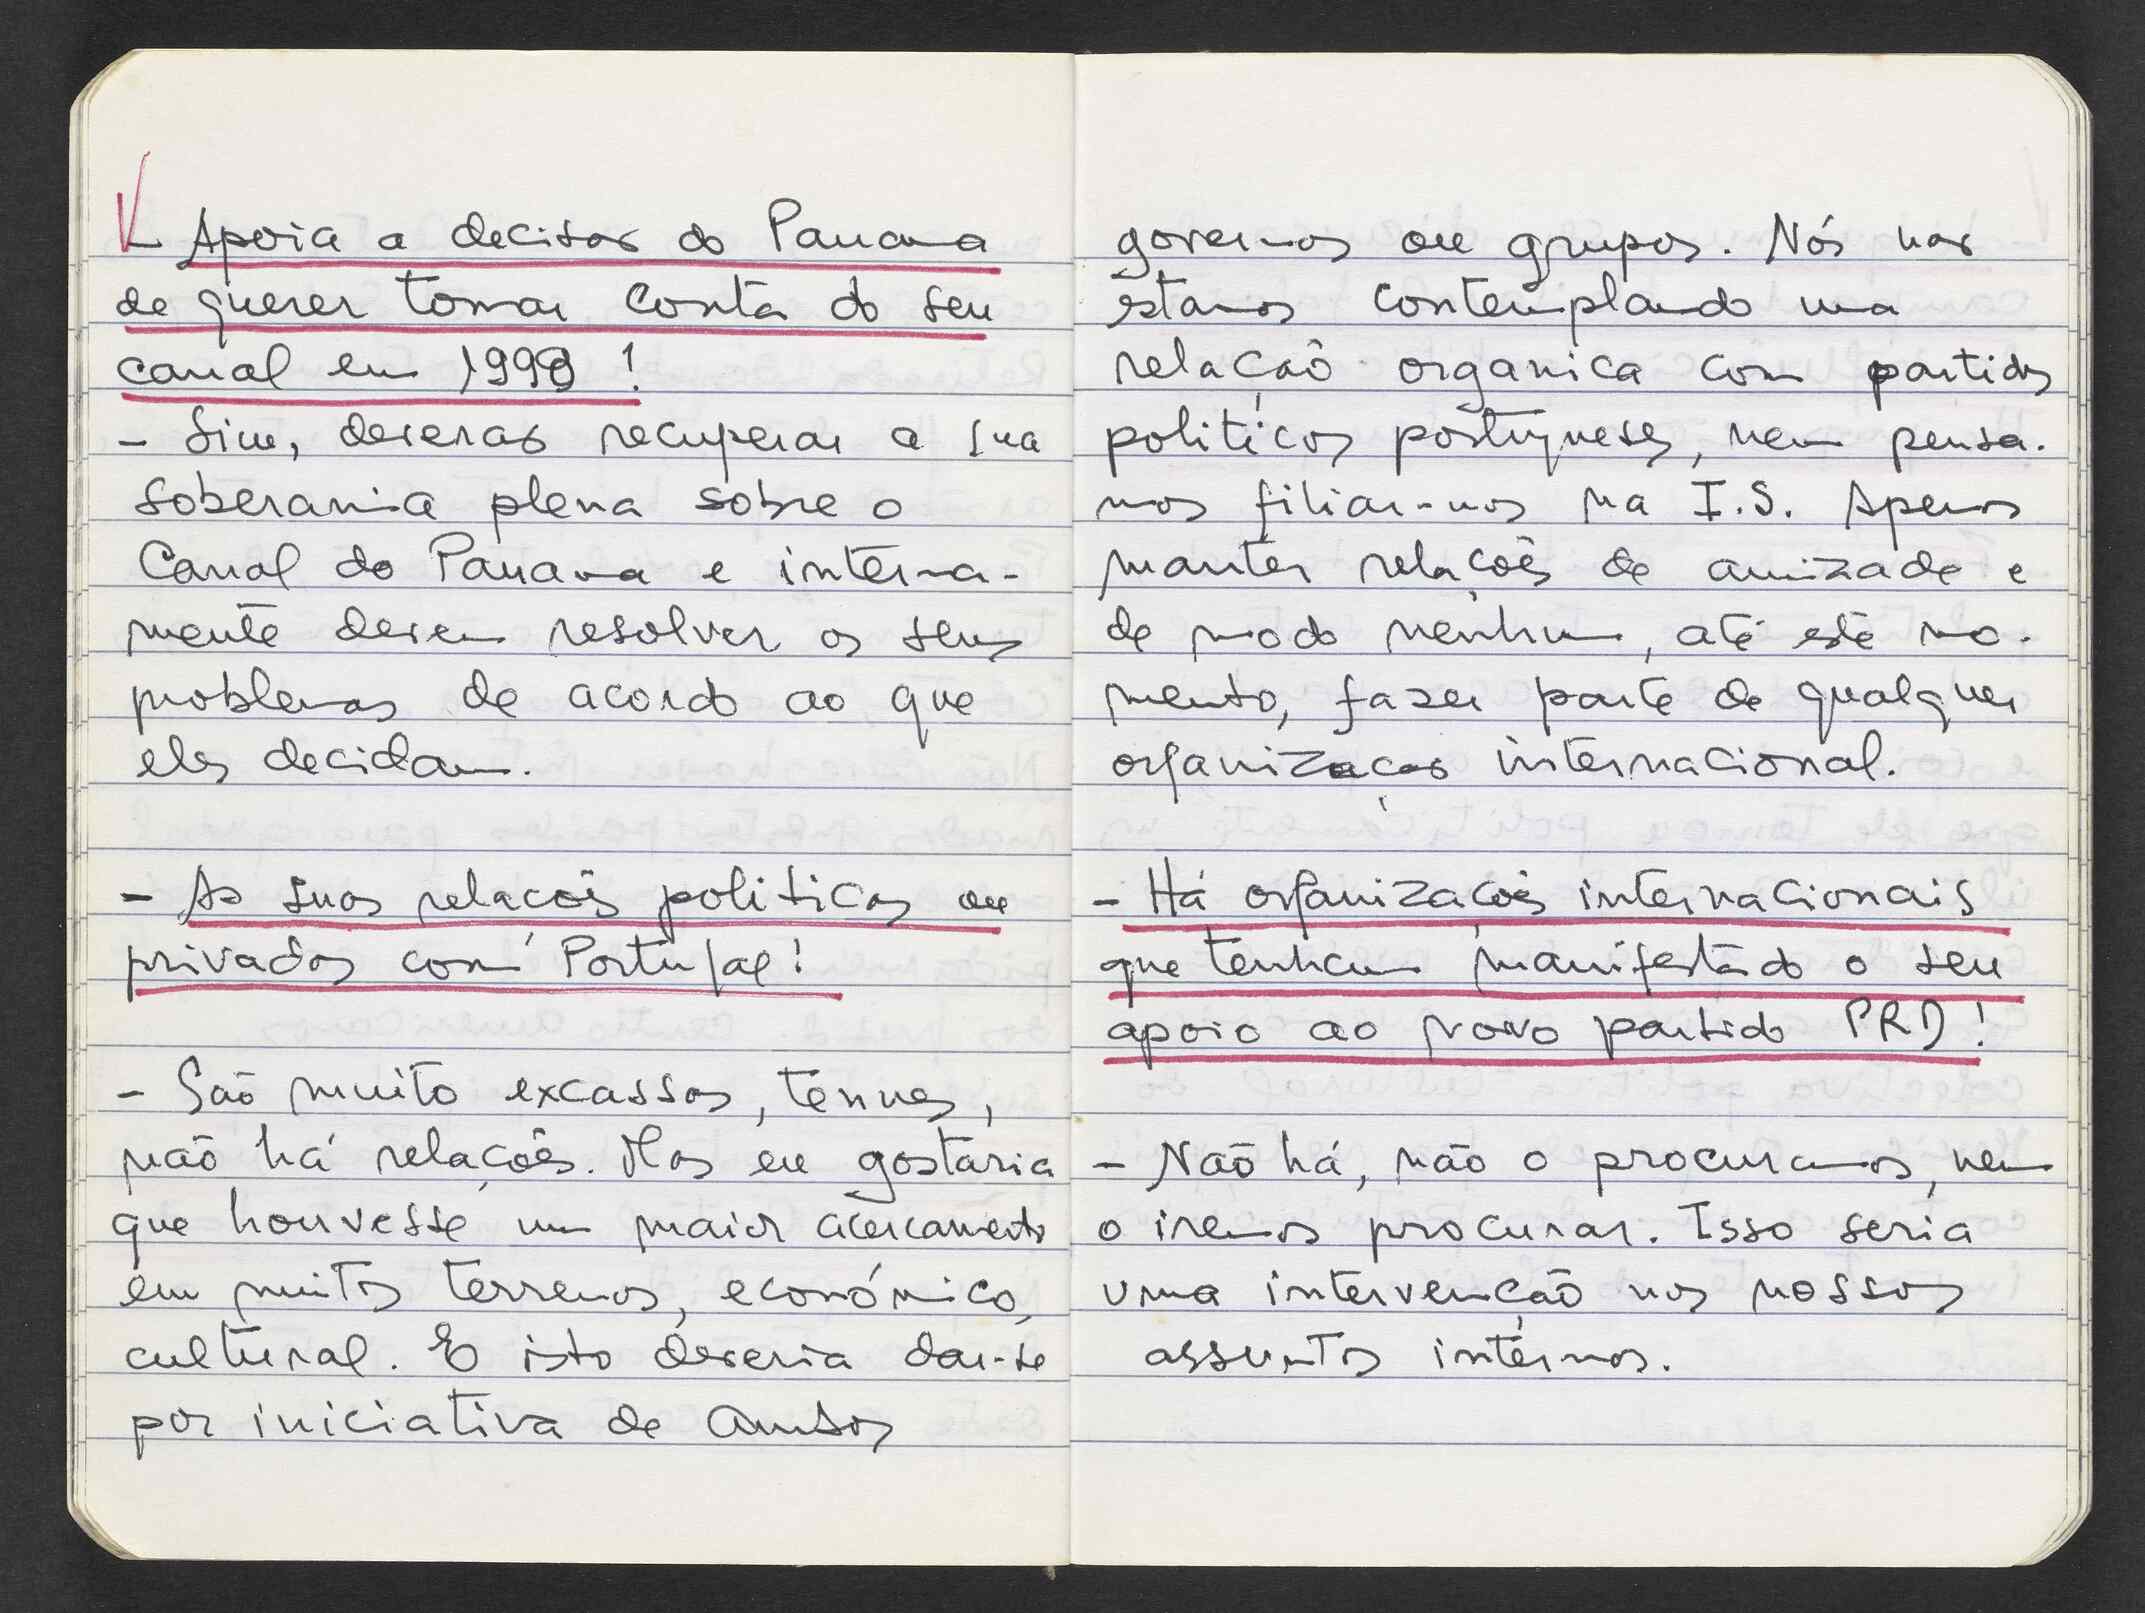 - Apoia a decisão do Panama
de querer tomar conta do seu
canal em 1999!
- Sim, deverão recuperar a sua
soberania plena sobre o
Canal do Panama e interna-
mente devem resolver os seus
problemas de acordo ao que
eles decidam.
- As suas relações politicas ou
privadas com Portugal!
- São muito excassas, tenues,
não há relações. Mas eu gostaria
que houvesse um maior acercamento
em muitos terrenos, económico,
cultural. E isto deveria dar-se
por iniciativa de ambos
governos ou grupos. Nós não
estamos contemplando uma
relação organica com partidos
politicos portugueses, nem pensa-
mos filiar-nos na I.S. Apenas
manter relações de amizade e
de modo nenhum, até este mo-
mento, fazer parte de qualquer
organização internacional.
- Há organizações internacionais
que tenham manifestado o seu
apoio ao novo partido PRD!
- Não há, não o procuramos, nem
o iremos procurar. Isso seria
uma intervenção nos nossos
assuntos internos.